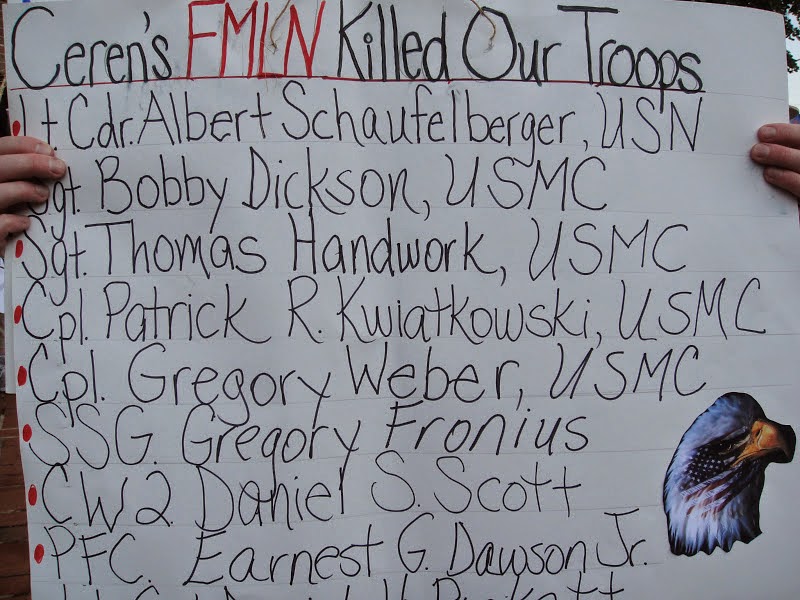 Ceren's FMLN Killed Our Troops
Lt. Cdr. Albert Schaufelberger, USN
Sgt. Bobby Dickson, USMC
Sgt. Thomas Handwork, USMC
Cpl. Patrick R. Kwiatkowski, USMC
Cpl. Gregory Weber, USMC
SSG. Gregory Fronius
CW2. Daniel S. Scott
PFC. Earnest G. Dawson Jr.